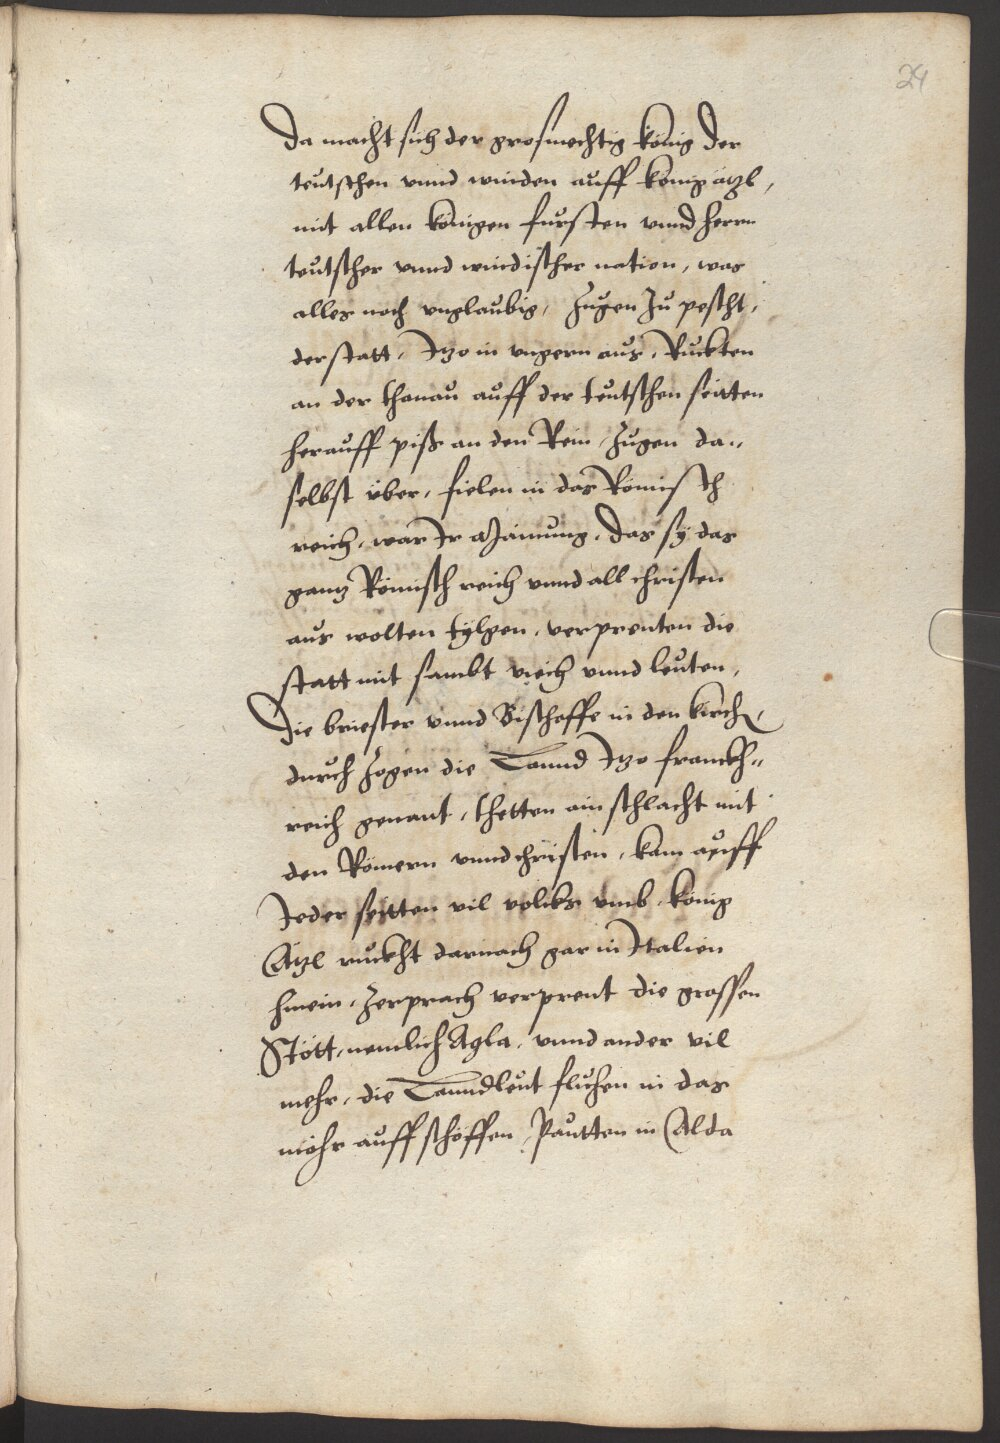 24
Da macht sich der grosmechtig König der
teutschen vnnd winden auff König atzl,
mit allen Königen fürsten vnnd herrn
teutscher vnnd windischer nation, was
alles noch vnglaubig, Zugen Zu pescht,
der statt, Itzo in vngern aus, Ruckten
an der thonau auff der teutschen seitten
herauff piss an den Rein, Zugen da„
selbst über, fielen in das Römisch
reich, war Ir Mainung, das sy das
gantz Römisch reich vnnd all christen
aus wolten tylgen, verprenten die
statt mit sambt viech vnnd leuten,
Die briester vnnd Bischoffe in den kirch,
durch Zogen die Lannd Itzo franckh„
reich genant, thetten ain schlacht mit
den Römern vnnd christen, kam auff
Ieder seitten vil volcks vmb, König
Atzl ruckht darnach gar in Italien
hinein, Zerprach verprent die grossen
Stött, nemlich Agla, vnnd ander vil
mehr, die Lanndleut fluhen in das
mőhr auff schöffen, Pautten in Alda